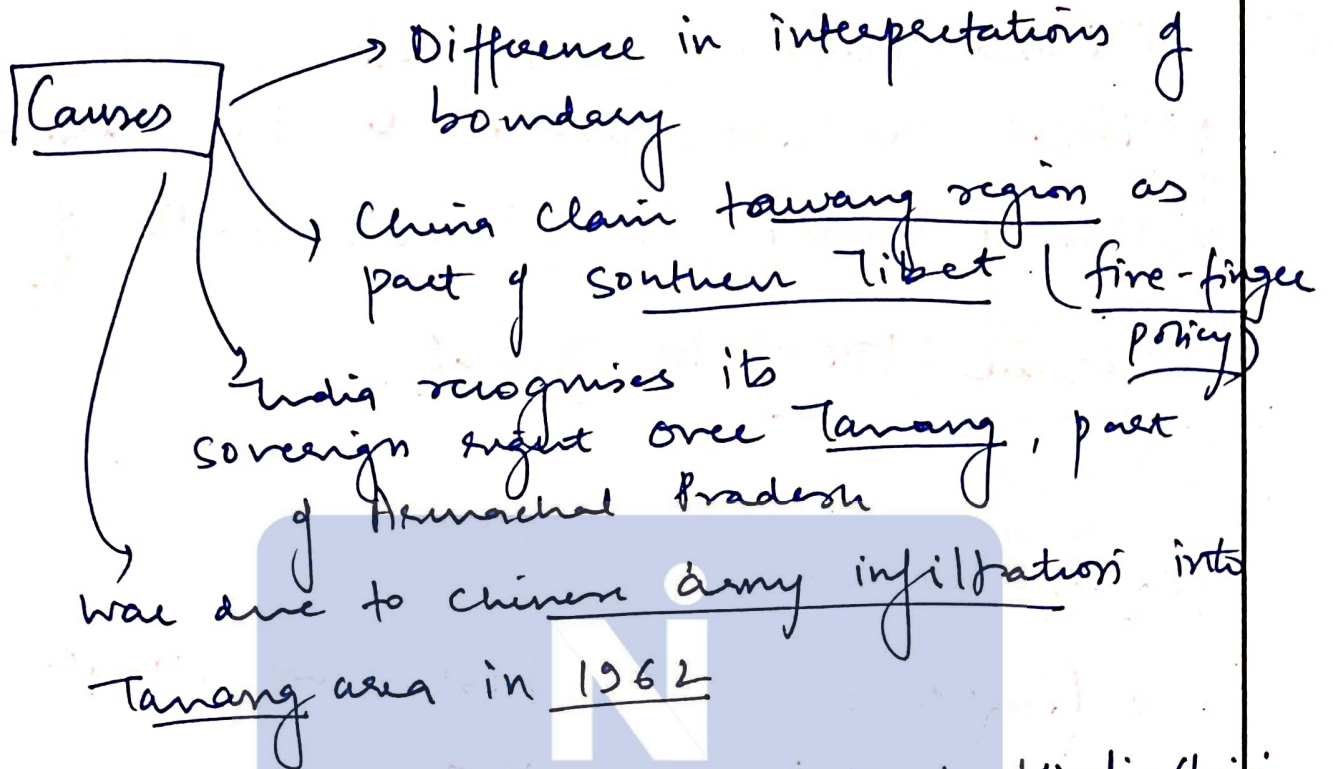 Causes
→ Difference in interpretations of
boundary
→ China claim tawang region as
part of southern Tibet (five-finger
policy)
→ India recognises its
sovereign right over Tawang, part
of Arunachal Pradesh
→ war due to chinese army infiltration into
Tawang area in 1962
N